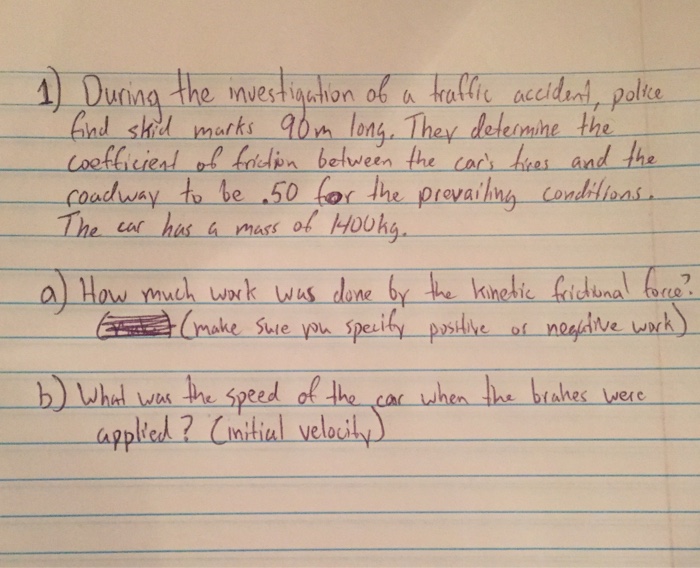 1) During the investigation of a traffic accident, police
find skid marks 90m long. They determine the
coefficient of friction between the car's tires and the
roadway to be .50 for the prevailing conditions.
The car has a mass of 1400kg.
a) How much work was done by the kinetic frictional force?
(make sure you specify positive or negative work)
b) What was the speed of the car when the brakes were
applied? (initial velocity)